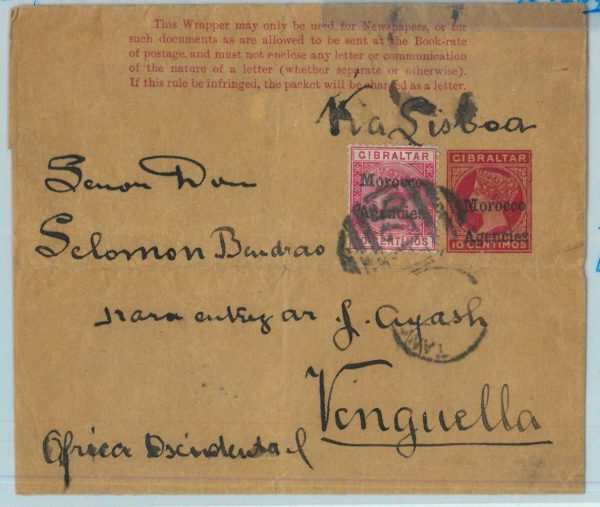 This Wrapper may only be used for Newspapers, or for
such documents as are allowed to be sent at the Book-rate
of postage, and must not enclose any letter or communication
of the nature of a letter (whether separate or otherwise).
If this rule be infringed, the packet will be charged as a letter.
Via Lisboa
GIBRALTAR
Morocco
Agencies
CENTIMOS
GIBRALTAR
Morocco
Agencies
10 CENTIMOS
Senor Don
Selomon Bendrao
para entregar J. Ayash
TAN
Venguella
Africa Oscidental